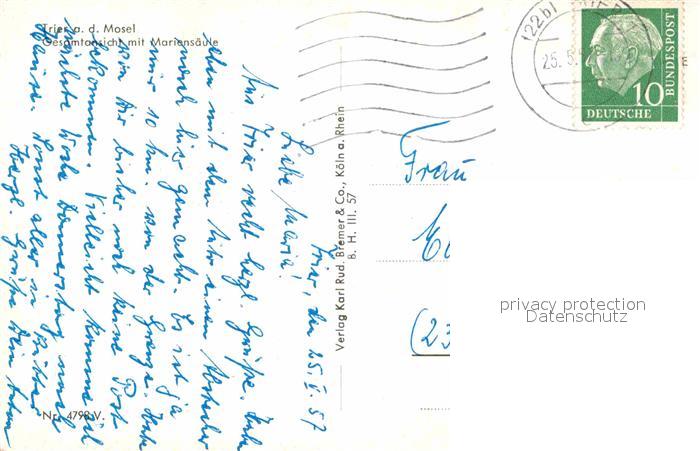 Trier a. d. Mosel
Gesamtansicht mit Mariensäule
Trier, den 25.V.57
Liebe Maria!
Aus Trier recht herzl. Grüße. Habe
eben mit dem Auto einen Abstecher
nach hier gemacht. Es ist ja
nur 10 km. von der Grenze. Habe
von Dir bisher noch keine Post
bekommen. Vielleicht komme ich
nächste Woche Donnerstag nach
Hause. Sonst alles in Butter
Herzl. Grüße Dein
Nr. 4798 V.
Verlag Karl Rud. Bremer & Co., Köln a. Rhein
B. H. III. 57
(22b)
25.5.
DEUTSCHE
BUNDESPOST
10
E
Frau
(23
privacy protection
Datenschutz